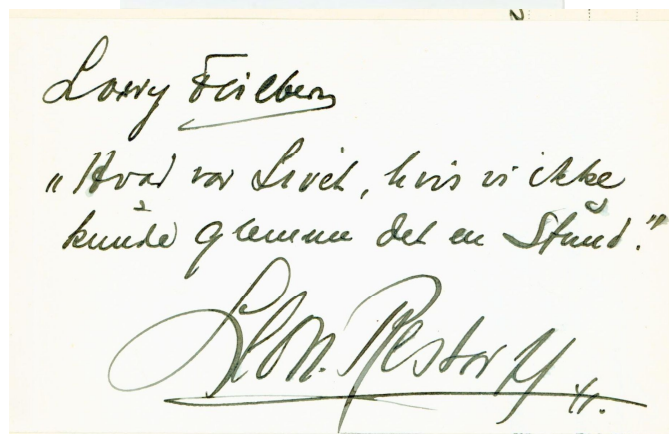 Lorry Feilberg
„Hvad var Livet, hvis vi ikke
kunde glemme det en Stund."
Restorff